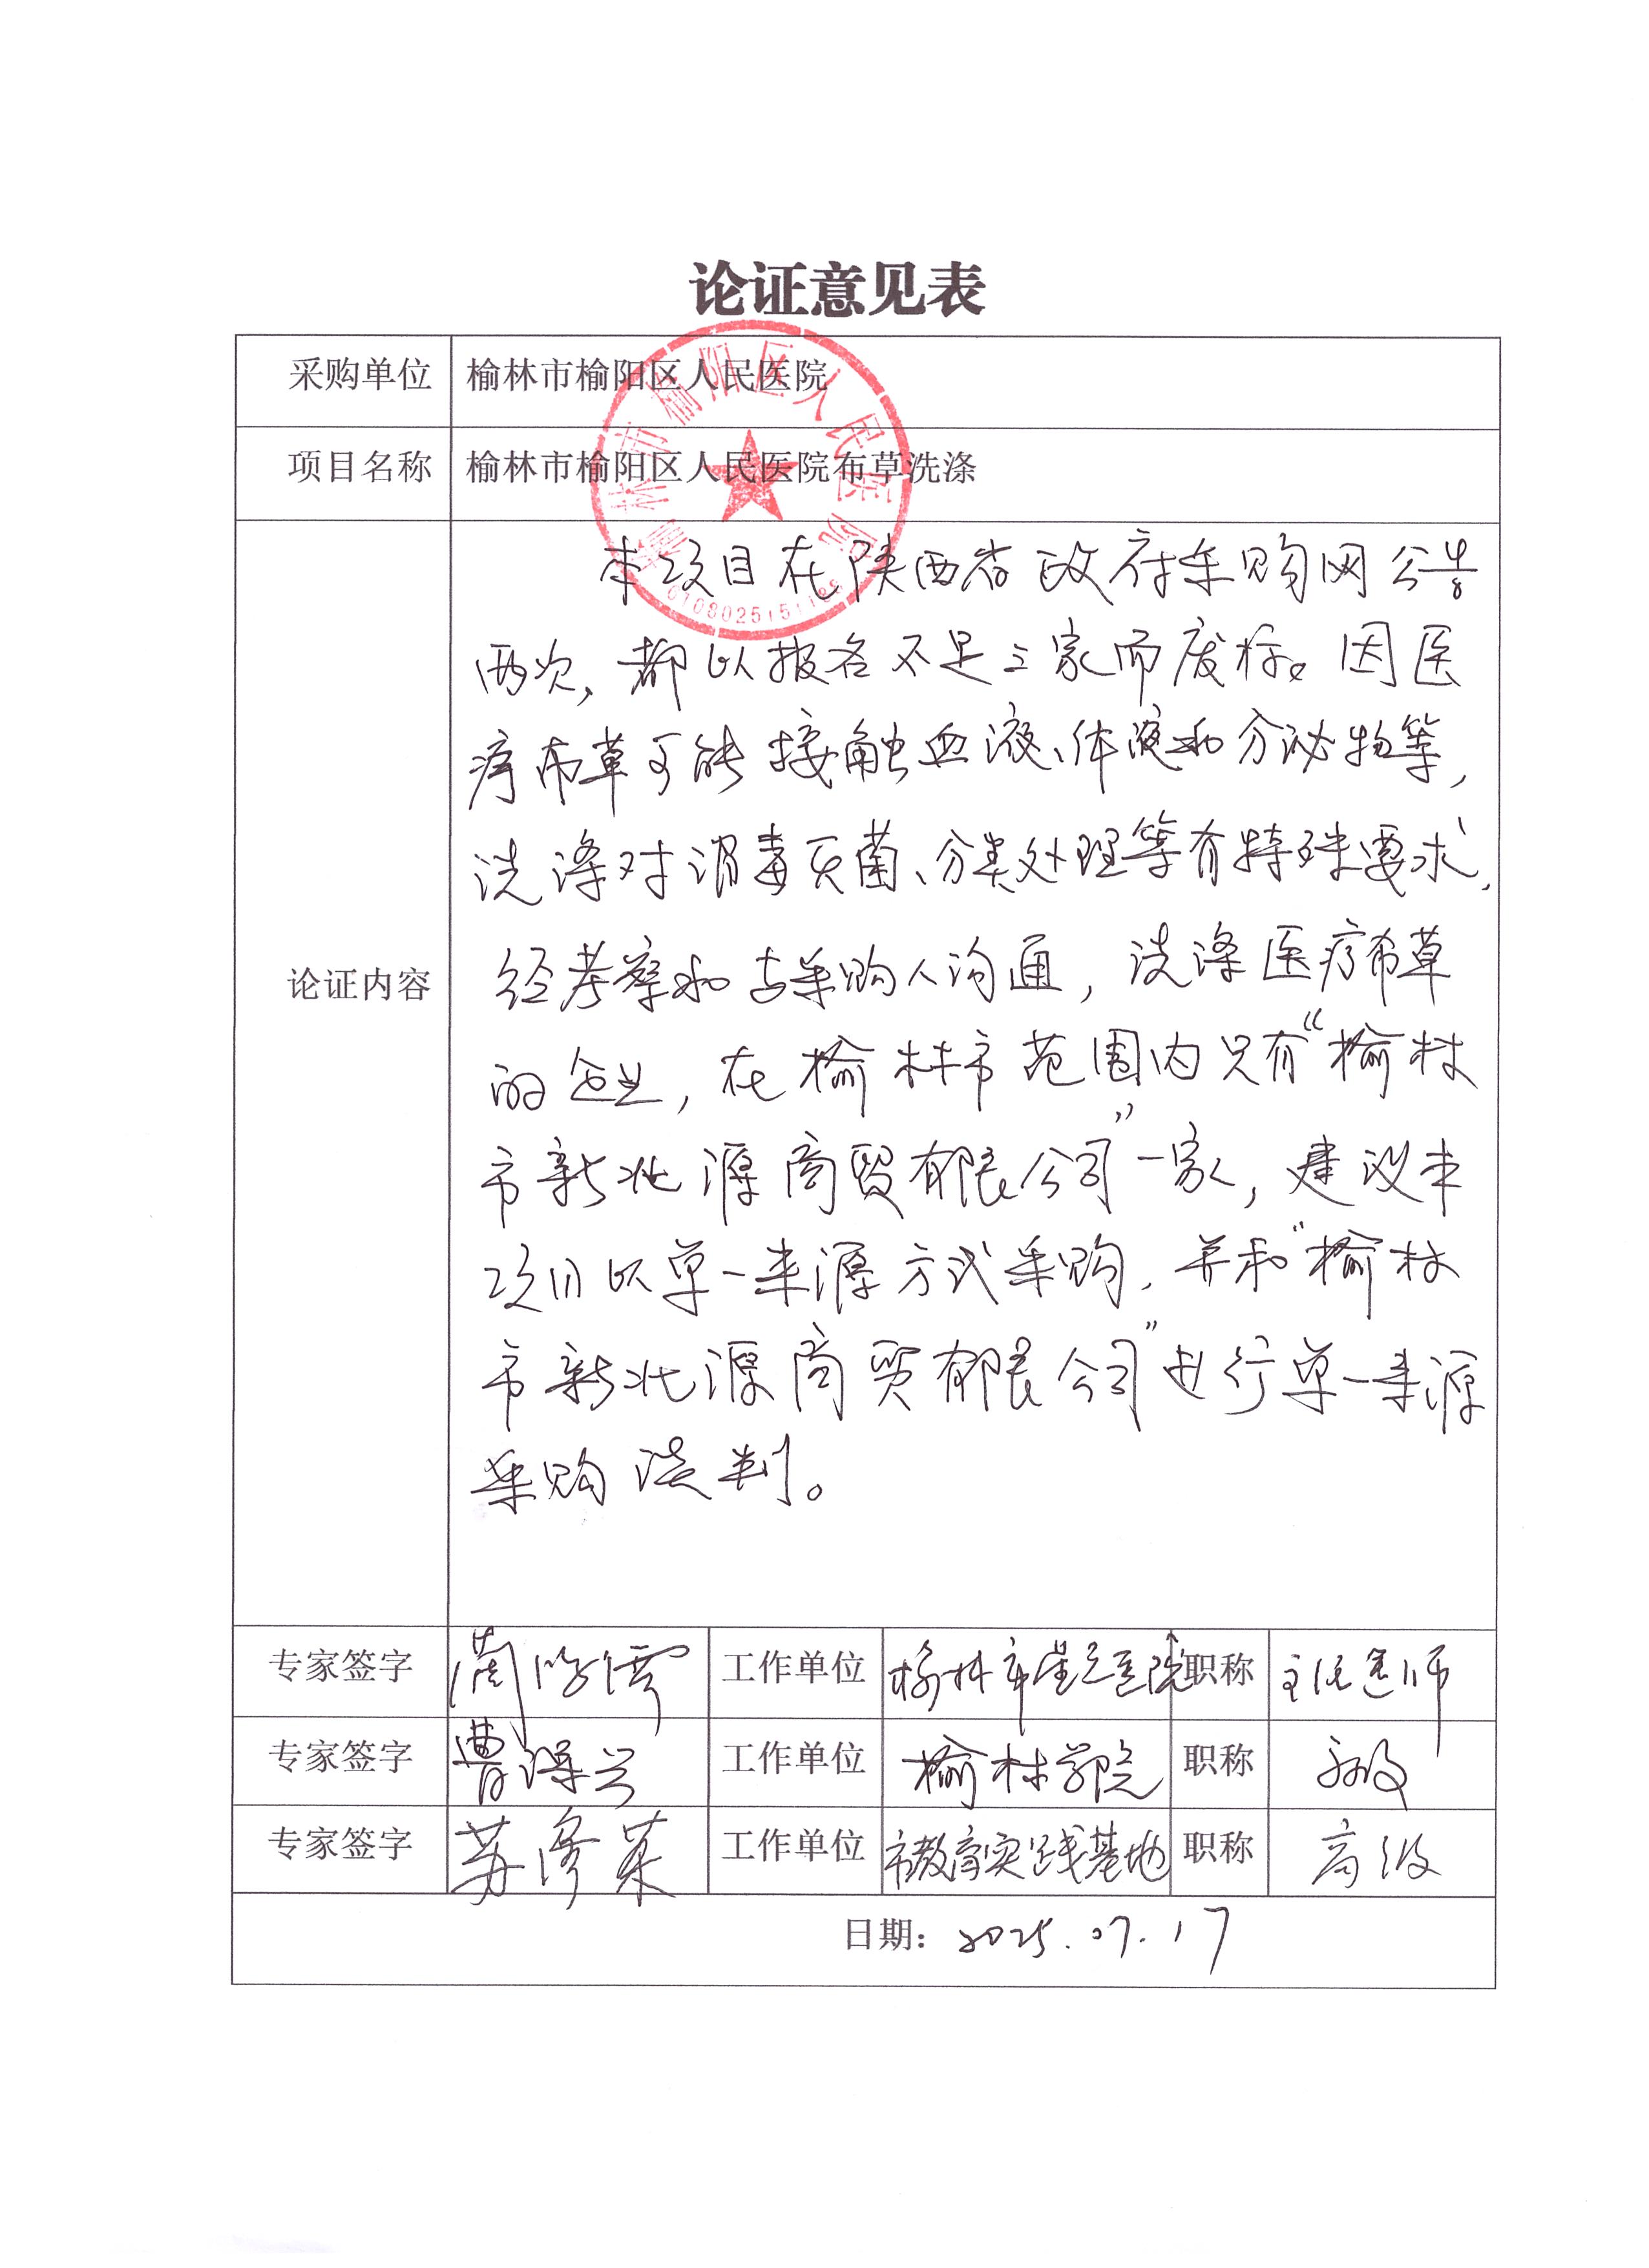 论证意见表
采购单位 榆林市榆阳区人民医院
项目名称 榆林市榆阳区人民医院布草洗涤
榆林市榆阳区人民医院
论证内容
本项目在陕西省政府采购网公告
两次,都以报名不足三家而废标。因医
疗布草可能接触血液、体液和分泌物等,
洗涤对消毒灭菌、分类处理等有特殊要求,
经考察和与采购人沟通,洗涤医疗布草
的企业,在榆林市范围内只有“榆林
市新北源商贸有限公司”一家,建议本
项目以单一来源方式采购,并和“榆林
市新北源商贸有限公司”进行单一来源
采购谈判。
专家签字 工作单位 榆林市星元医院 职称 主任医师
专家签字 曹泽兴 工作单位 榆林学院 职称
专家签字 苏 工作单位 市教育实践基地 职称 高级
日期: 2025.07.17